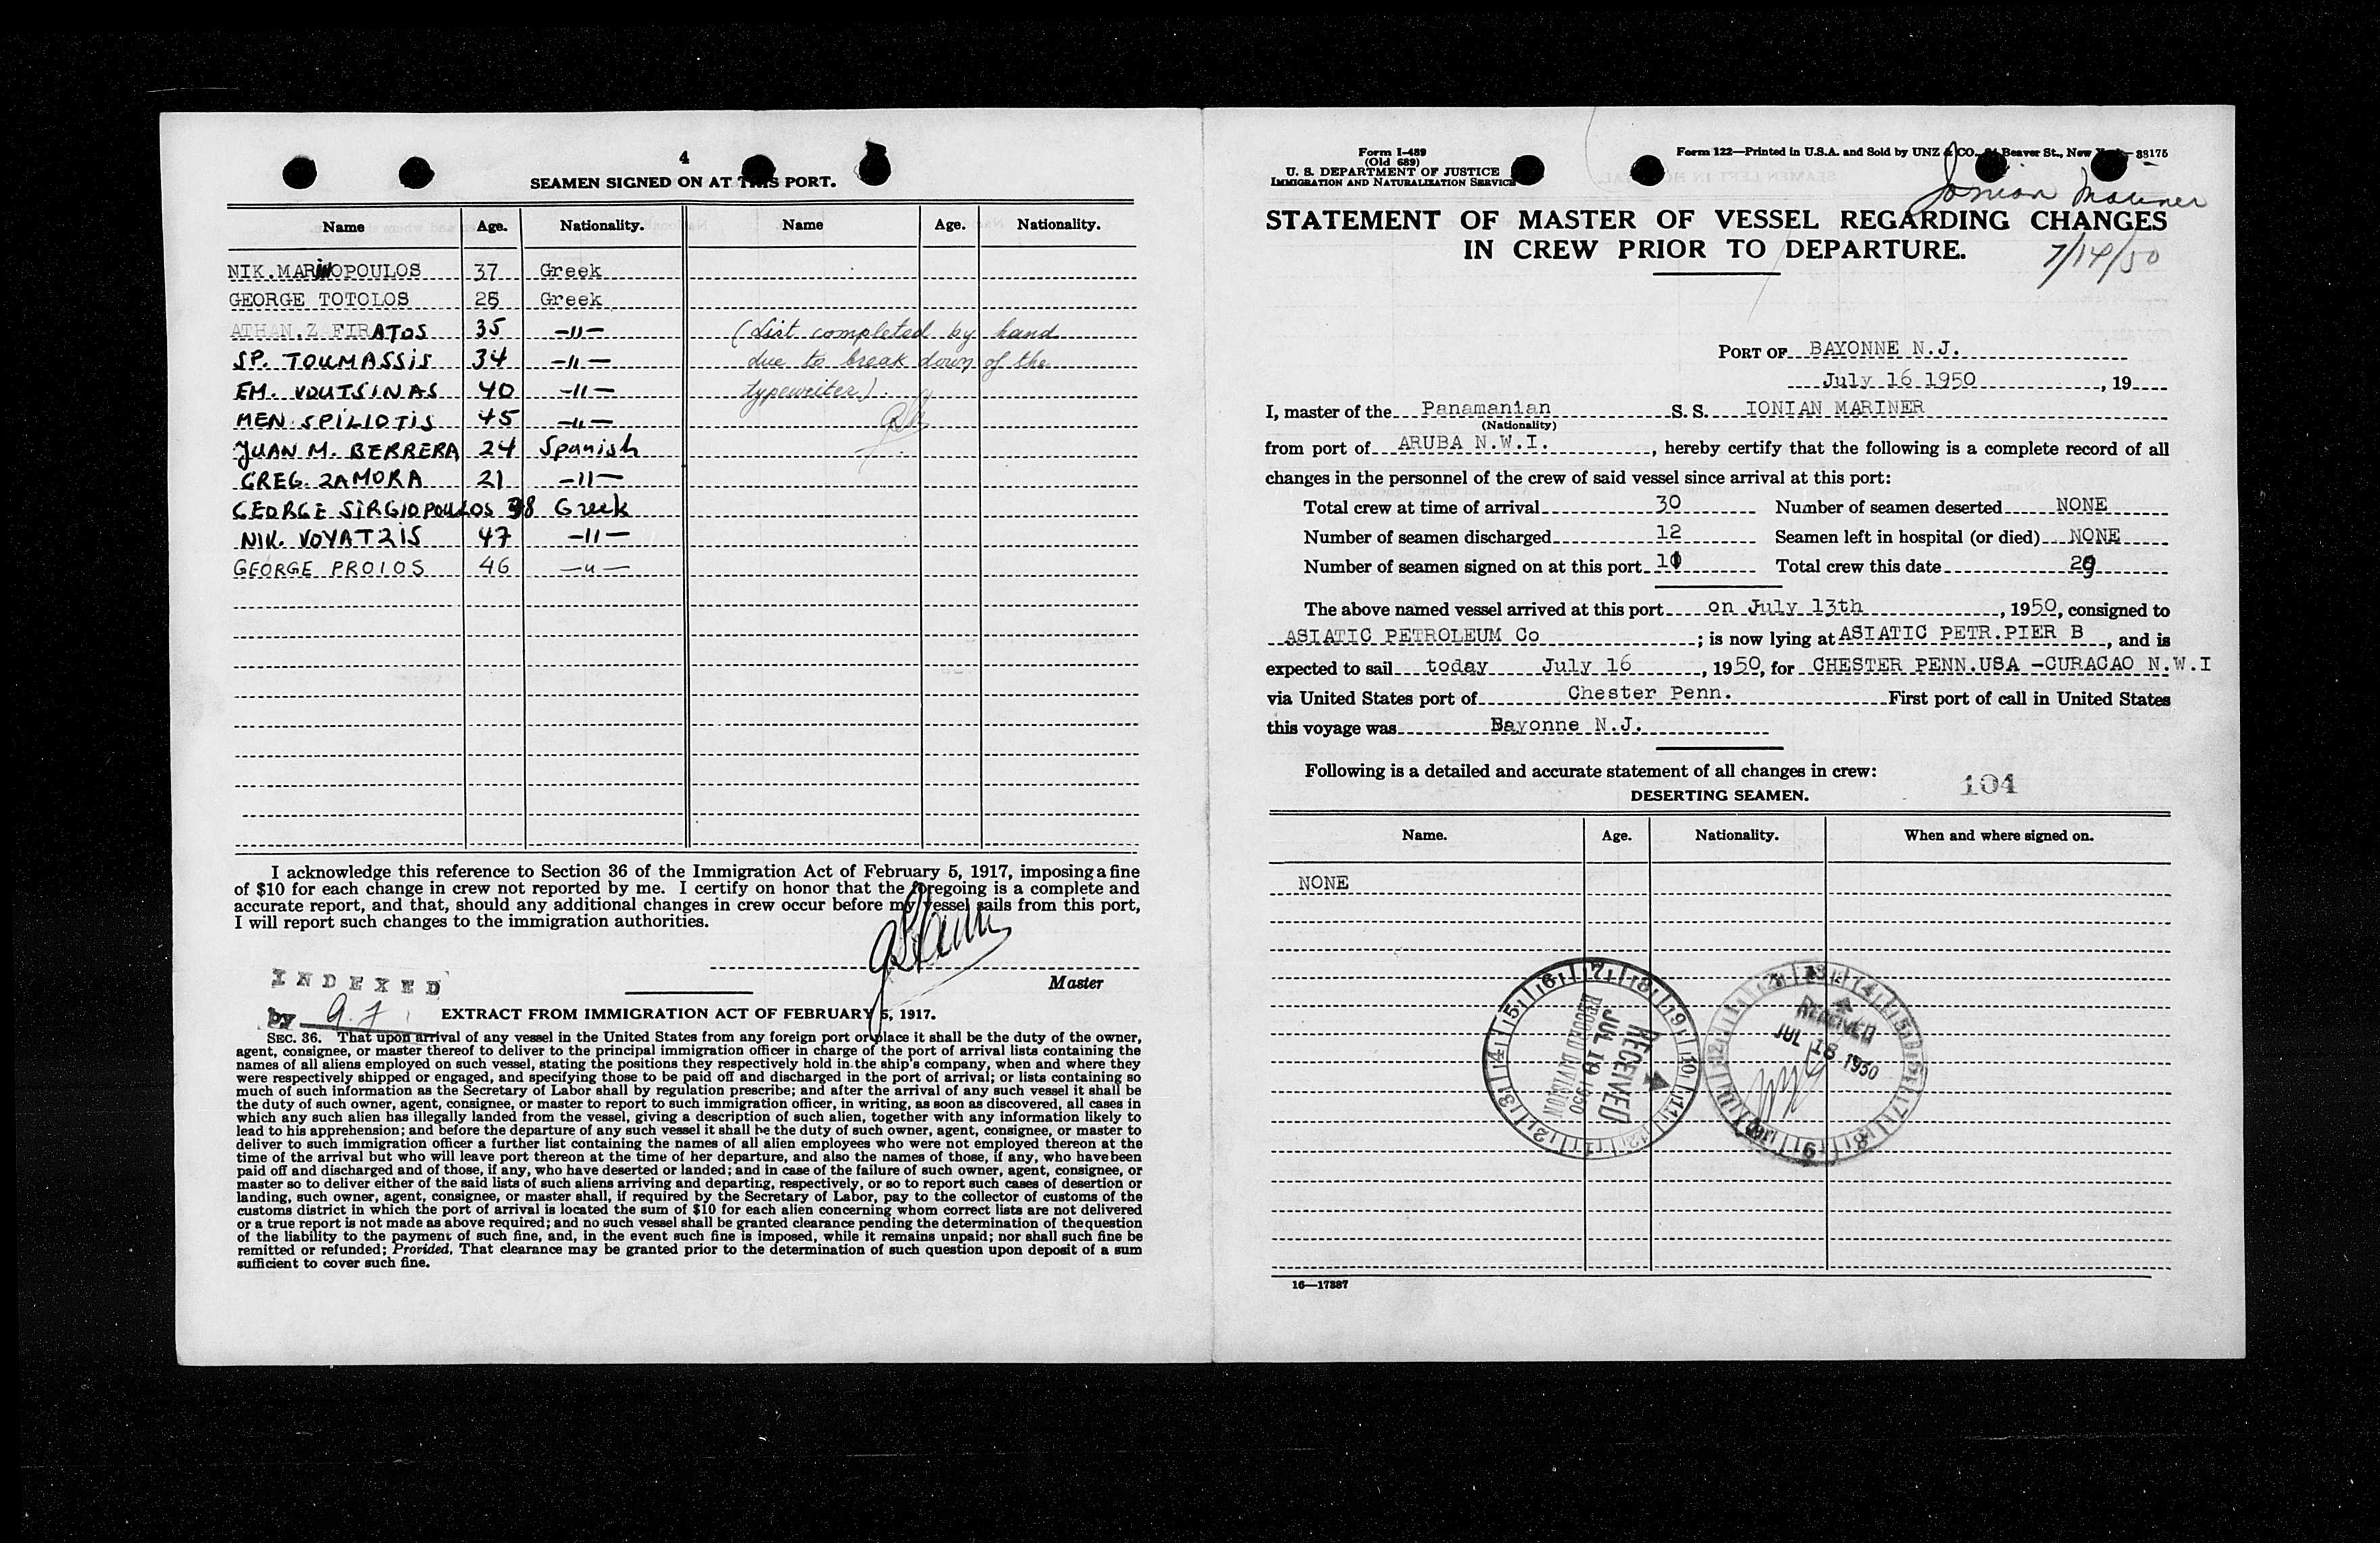 4
SEAMEN SIGNED ON AT THIS PORT.
Name Age. Nationality. Name Age. Nationality.
NIK.MARINOPOULOS 37 Greek
GEORGE TOTOLOS 25 Greek
ATHAN.ZAFIRATOS 35 -"-
SP. TOUMASSIS 34 -"-
EM. VOUTSINAS 40 -"-
MEN. SPILIOTIS 45 -"-
JUAN M. BERRERA 24 Spanish
GREG. ZAMORA 21 -"-
GEORGE SIRGIOPOULOS 38 Greek
NIK. VOYATZIS 47 -"-
GEORGE PROIOS 46 -"-
(List completed by hand
due to break down of the
typewriter).
I acknowledge this reference to Section 36 of the Immigration Act of February 5, 1917, imposing a fine
of $10 for each change in crew not reported by me. I certify on honor that the foregoing is a complete and
accurate report, and that, should any additional changes in crew occur before my vessel sails from this port,
I will report such changes to the immigration authorities.
Master
INDEXED
by
EXTRACT FROM IMMIGRATION ACT OF FEBRUARY 5, 1917.
SEC. 36. That upon arrival of any vessel in the United States from any foreign port or place it shall be the duty of the owner,
agent, consignee, or master thereof to deliver to the principal immigration officer in charge of the port of arrival lists containing the
names of all aliens employed on such vessel, stating the positions they respectively hold in the ship's company, when and where they
were respectively shipped or engaged, and specifying those to be paid off and discharged in the port of arrival; or lists containing so
much of such information as the Secretary of Labor shall by regulation prescribe; and after the arrival of any such vessel it shall be
the duty of such owner, agent, consignee, or master to report to such immigration officer, in writing, as soon as discovered, all cases in
which any such alien has illegally landed from the vessel, giving a description of such alien, together with any information likely to
lead to his apprehension; and before the departure of any such vessel it shall be the duty of such owner, agent, consignee, or master to
deliver to such immigration officer a further list containing the names of all alien employees who were not employed thereon at the
time of the arrival but who will leave port thereon at the time of her departure, and also the names of those, if any, who have been
paid off and discharged and of those, if any, who have deserted or landed; and in case of the failure of such owner, agent, consignee, or
master so to deliver either of the said lists of such aliens arriving and departing, respectively, or so to report such cases of desertion or
landing, such owner, agent, consignee, or master shall, if required by the Secretary of Labor, pay to the collector of customs of the
customs district in which the port of arrival is located the sum of $10 for each alien concerning whom correct lists are not delivered
or a true report is not made as above required; and no such vessel shall be granted clearance pending the determination of the question
of the liability to the payment of such fine, and, in the event such fine is imposed, while it remains unpaid; nor shall such fine be
remitted or refunded; Provided, That clearance may be granted prior to the determination of such question upon deposit of a sum
sufficient to cover such fine.
Form I-489
(Old 689)
U. S. DEPARTMENT OF JUSTICE
IMMIGRATION AND NATURALIZATION SERVICE
Form 122—Printed in U.S.A. and Sold by UNZ & CO. Beaver St., New 88175
Ionian Mariner
STATEMENT OF MASTER OF VESSEL REGARDING CHANGES
IN CREW PRIOR TO DEPARTURE.
7/14/50
PORT OF BAYONNE N.J.
July 16 1950, 19
I, master of the Panamanian S. S. IONIAN MARINER
(Nationality)
from port of ARUBA N.W.I., hereby certify that the following is a complete record of all
changes in the personnel of the crew of said vessel since arrival at this port:
Total crew at time of arrival 30 Number of seamen deserted NONE
Number of seamen discharged 12 Seamen left in hospital (or died) NONE
Number of seamen signed on at this port 11 Total crew this date 29
The above named vessel arrived at this port on July 13th, 1950, consigned to
ASIATIC PETROLEUM Co; is now lying at ASIATIC PETR.PIER B, and is
expected to sail today July 16, 1950, for CHESTER PENN.USA -CURACAO N.W.I
via United States port of Chester Penn. First port of call in United States
this voyage was Bayonne N.J.
Following is a detailed and accurate statement of all changes in crew:
104
DESERTING SEAMEN.
Name. Age. Nationality. When and where signed on.
NONE
RECEIVED
JUL 19 1950
RECORD DIVISION
RECEIVED
JUL 18 1950
16—17387